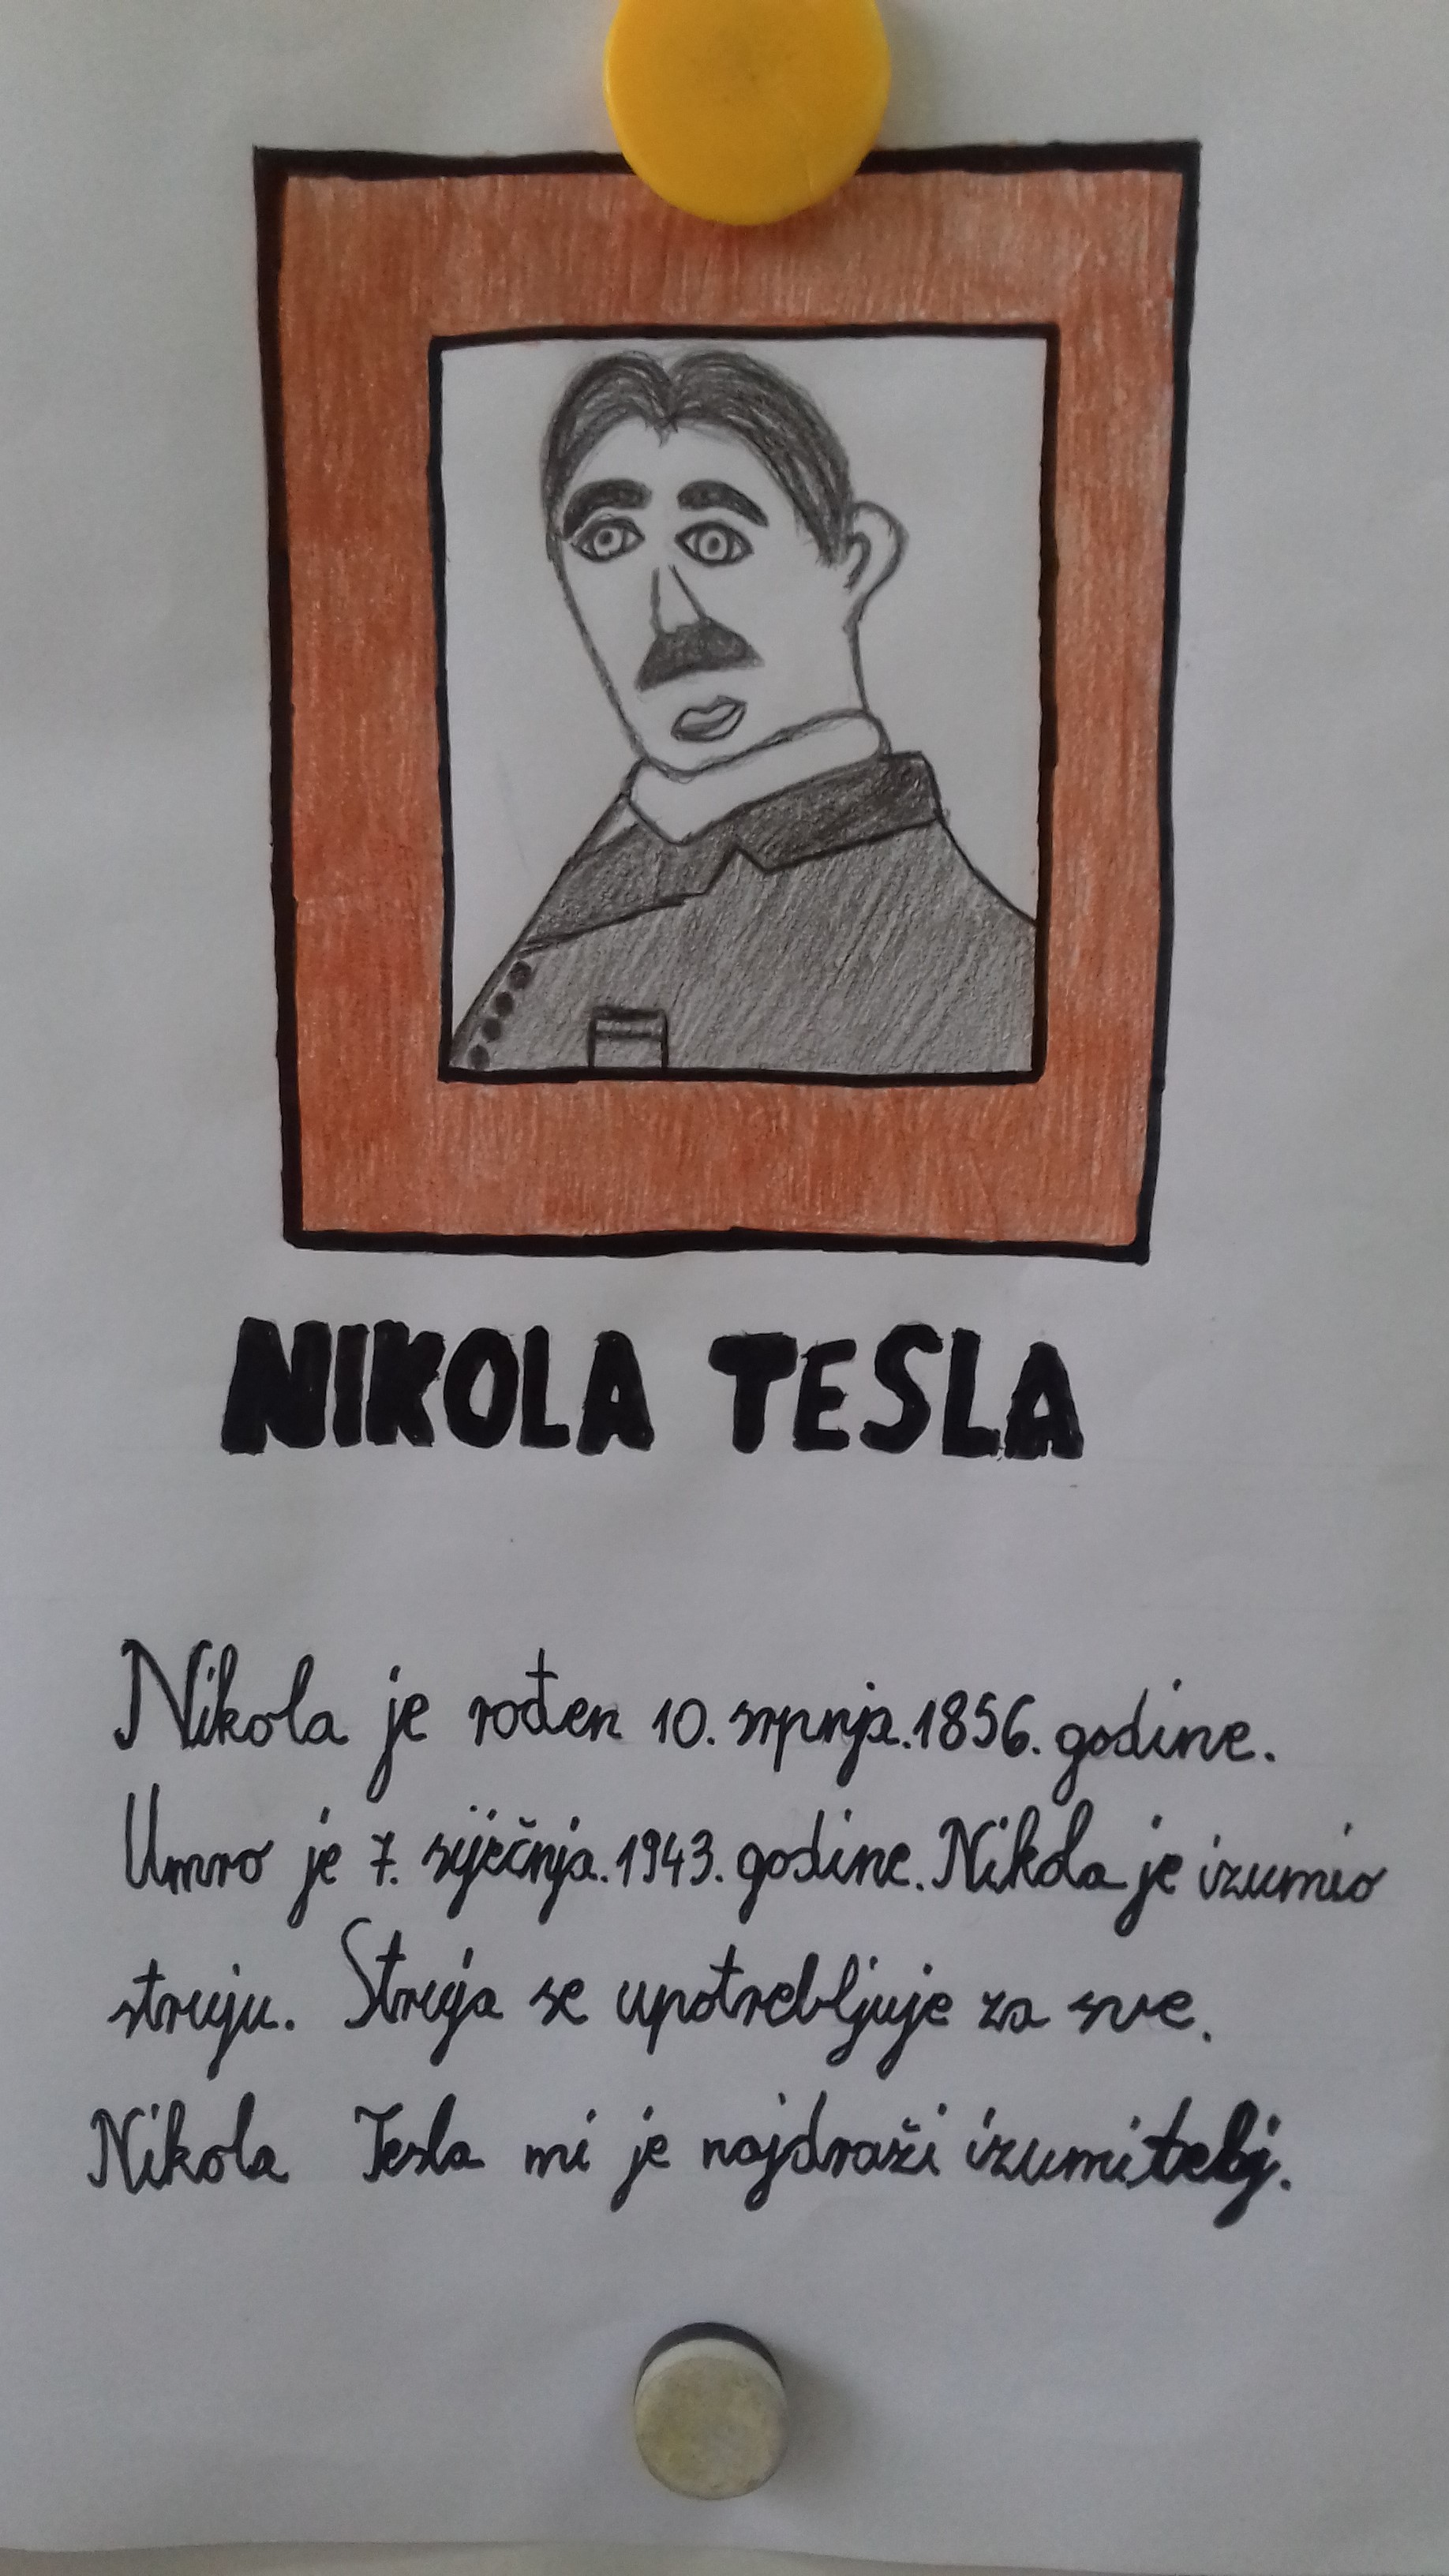 NIKOLA TESLA
Nikola je rođen 10. srpnja. 1856. godine.
Umro je 7. siječnja. 1943. godine. Nikola je izumio
struju. Struja se upotrebljuje za sve.
Nikola Tesla mi je najdraži izumitelj.